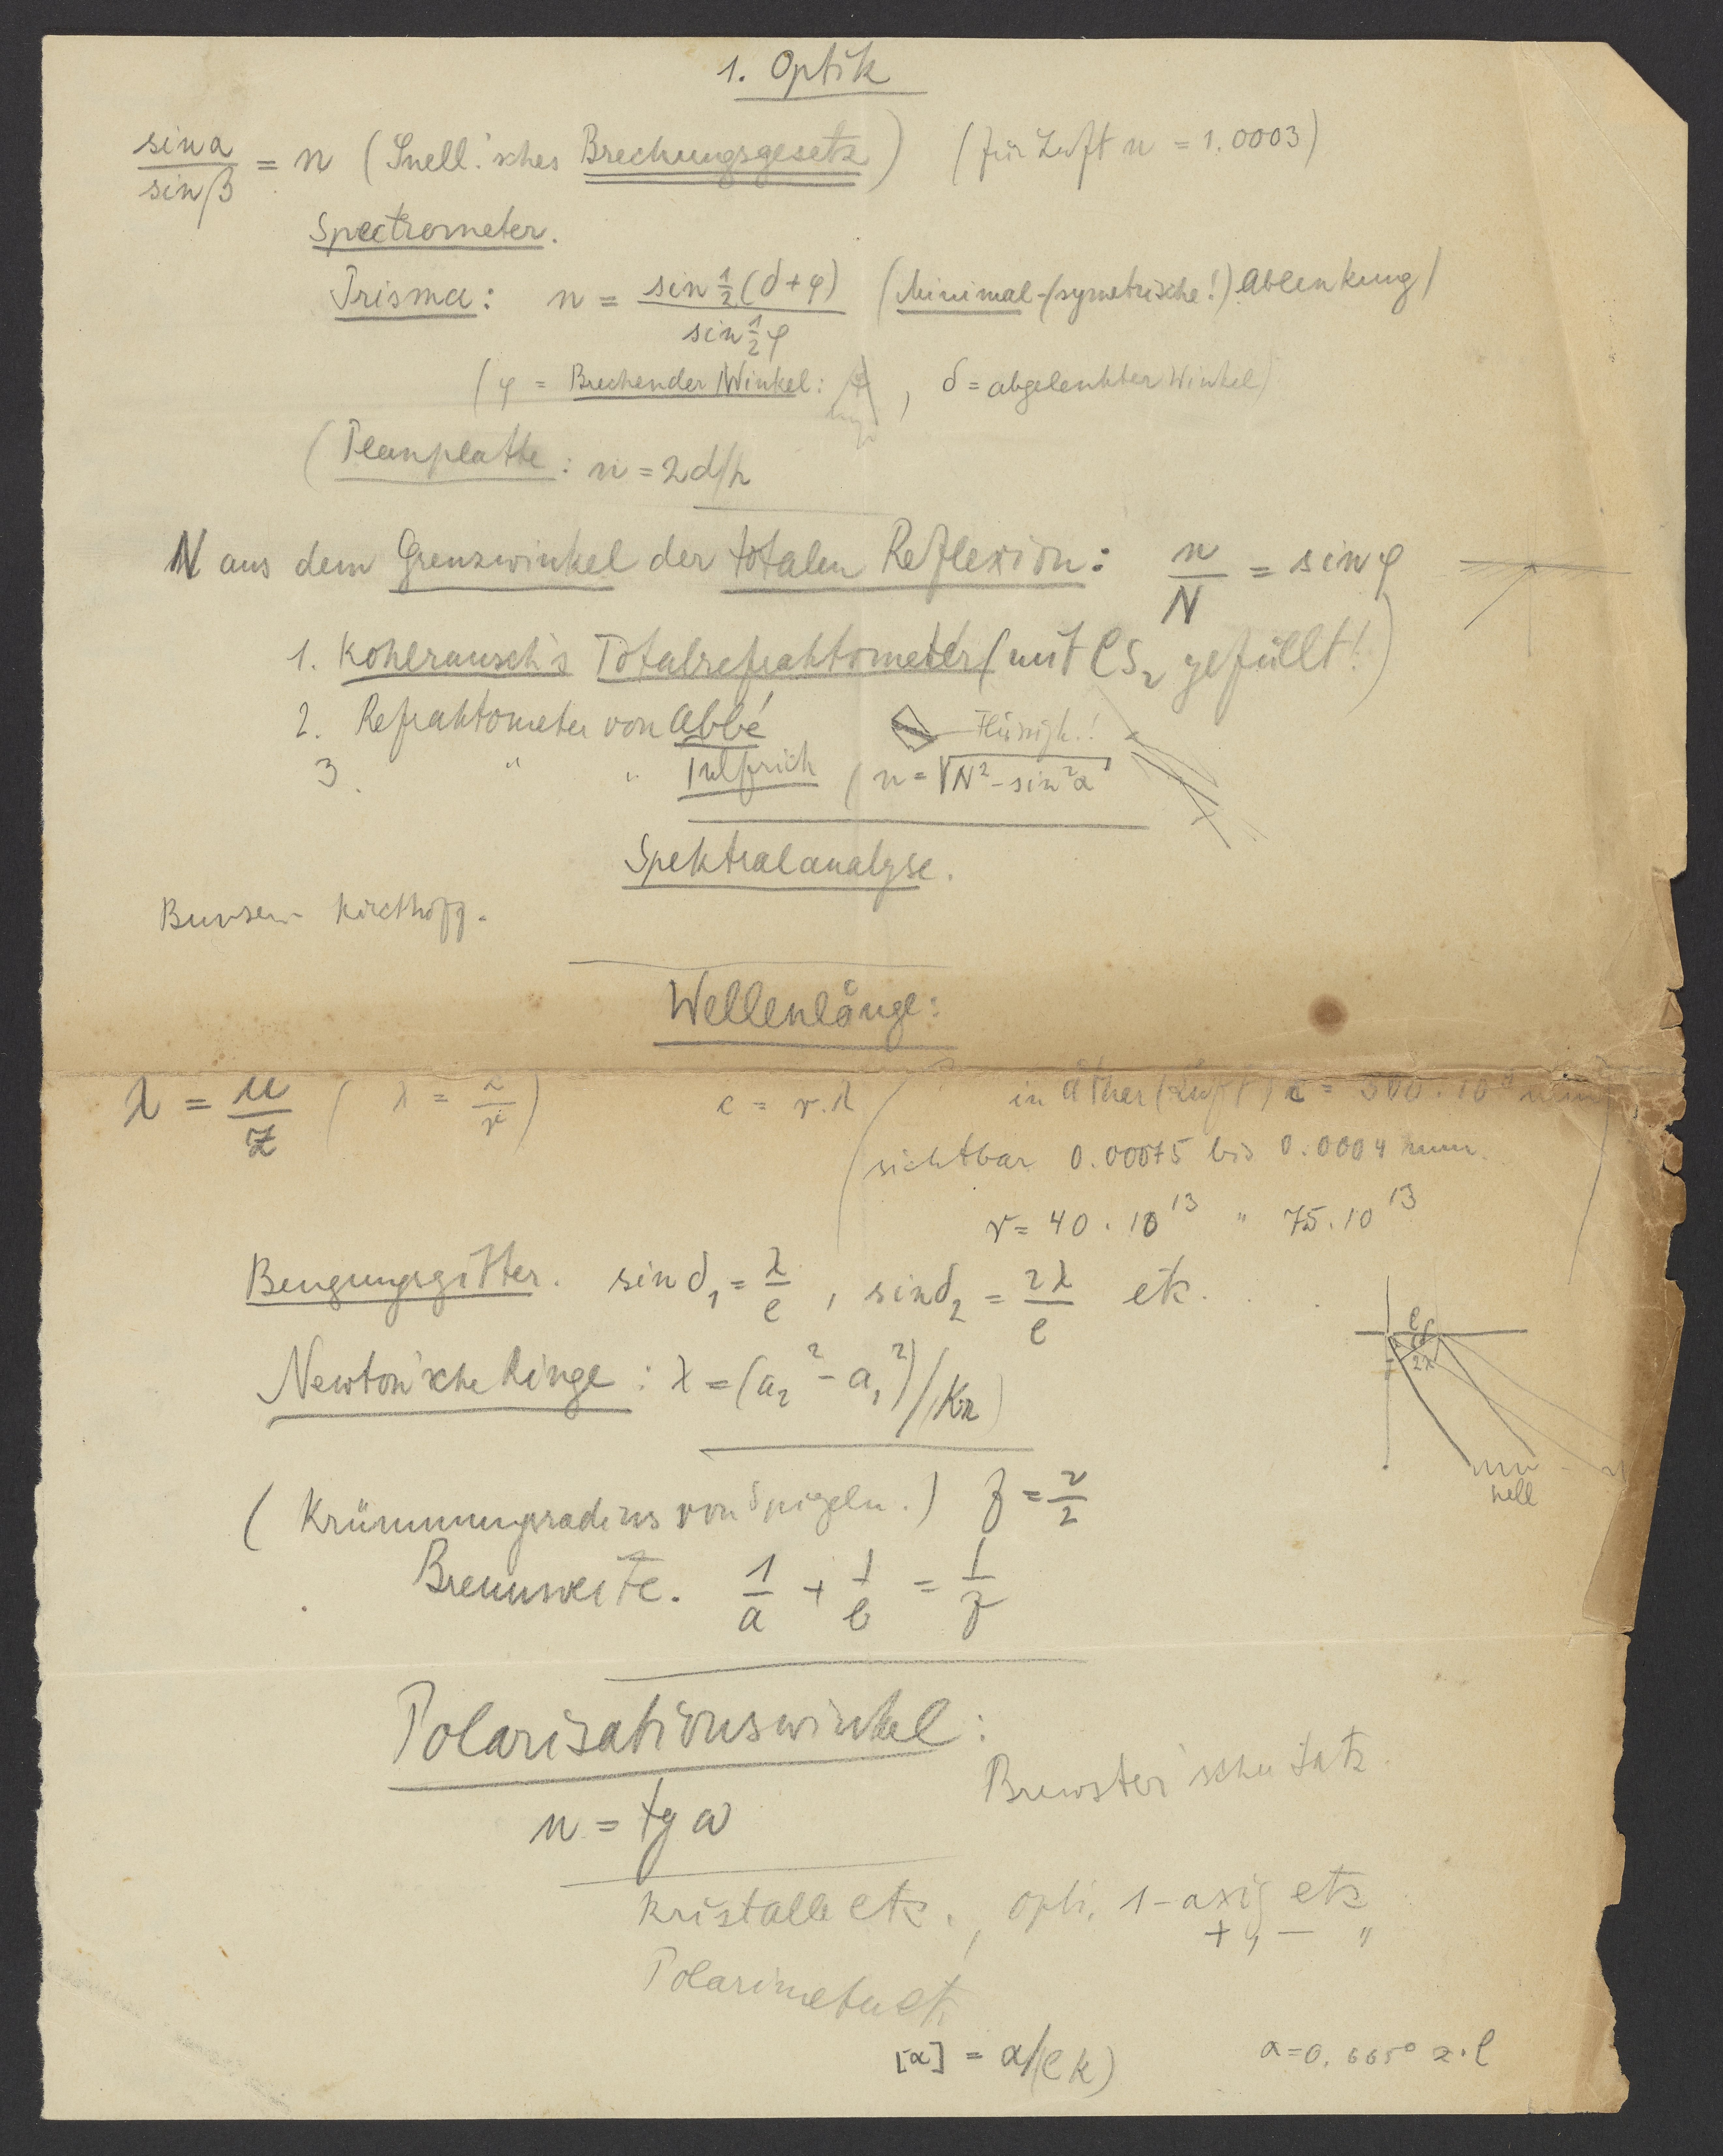 1. Optik
sin α / sin β = n (Snell'sches Brechungsgesetz) (für Luft n = 1.0003)
Spectrometer.
Prisma: n = sin ½(δ+φ) / sin ½φ (Minimal-(symetrische!) Ablenkung)
(φ = Brechender Winkel: φ, δ = abgelenkter Winkel)
(Planplatte: n = 2d/h
N aus dem Grenzwinkel der totalen Reflexion: n/N = sin φ
1. Kohlrausch's Totalrefraktometer (mit CS₂ gefüllt!)
2. Refraktometer von Abbé Flüssigk.!
3. " " Pulfrich (n = √N² - sin²α
Spektralanalyse.
Bunsen Kirchhoff.
Wellenlänge:
λ = u/z (λ = c/ν) c = ν.λ in Äther (Luft) c = 300.10⁹ mm
(sichtbar 0.00075 bis 0.0004 mm.
ν = 40.10¹³ " 75.10¹³
Beugungsgitter. sin δ₁ = λ/e, sin δ₂ = 2λ/e etc.
e δ 2λ
Newton'sche Ringe: λ = (a₂² - a₁²)/(Kr)
hell
(Krümmungsradius von Spiegeln.) f = r/2
Brennweite. 1/a + 1/b = 1/f
Polarisationswinkel:
Brewster'scher Satz.
n = tg α
Kristalle etc., opti. 1-axig etc
+, - "
Polarimeter etc.
[α] = α/(l k) α = 0.665° z.l